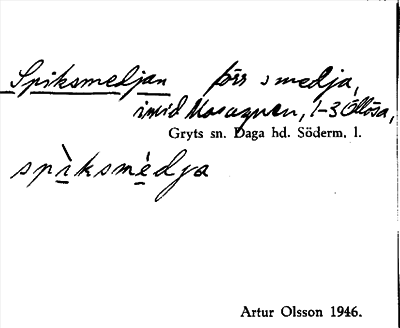 Spiksmedjan förr smedja,
invid Mosaquen, 1-3 Öllösa,
Gryts sn. Daga hd. Söderm. l.
spìksmèdja
Artur Olsson 1946.